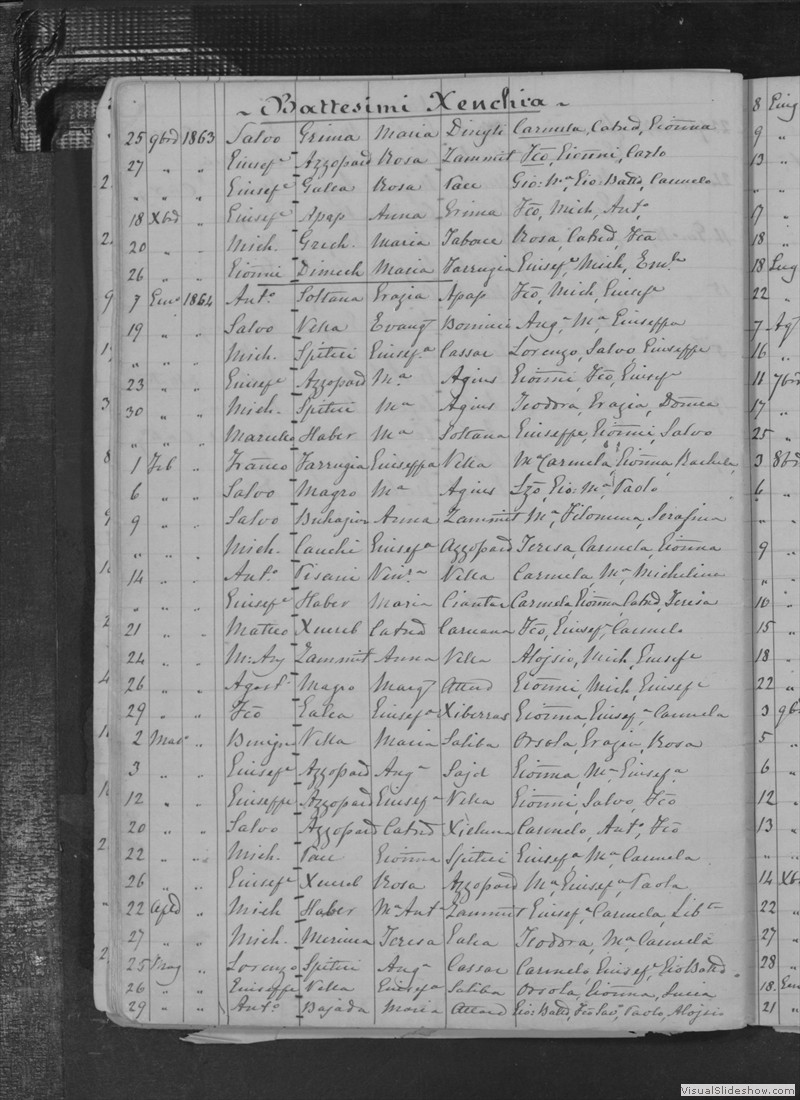 ~ Battesimi Xenchia ~
25 9bre 1863 Salvo Grima Maria Dingli Carmela, Catad, Giojnna
27 " " Giusepe Azzopard Rosa Zammit Fco, Giojnni, Carlo
" " " Giusepe Galea Rosa Pace Gio: Ma, Gio: Batta, Carmelo
18 Xbre " Giusepe Apap Anna Grima Fco, Mich, Anto
20 " " Mich. Grech. Maria Tabone Rosa, Catad, Fca
26 " " Giojnni Dimech Maria Farrugia Giusepe, Mich,
7 Geno 1864 Anto. Soltana Grazia Apap Fco, Mich, Giusepe
19 " " Salvo Vella Evangta Bonnici Anga, Ma, Giuseppa
" " " Mich. Spiteri Giusepa Cassar Lorenzo, Salvo, Giuseppe
23 " " Giusepe Azzopard Ma Agius Giojnni, Fco, Giusepe
30 " " Mich. Spiteri Ma Agius Teodora, Grazia, Domca
" " " Haber Ma Soltana Giuseppe, Giojnni, Salvo
1 Feb " Franco Farrugia Giuseppa Vella Ma Carmela, Giojnna, Rachela,
6 " " Salvo Magro Ma Agius Lzo, Gio: Ma, Paolo
9 " " Salvo Buhagiar Anna Zammit Ma, Filomena, Serafina
" " " Mich. Cauchi Giusepa Azzopard Teresa, Carmela, Giojnna
14 " " Anto. Pisani Vinca Vella Carmela, Ma, Michelina
" " " Giusepe Haber Maria Ciantar Carmela, Giojnna, Catad, Teresa
21 " " Matteo Xuereb Catad Caruana Fco, Giusepe, Carmelo
24 " " Zammit Anna Vella Alojsio, Mich, Giusepe
26 " " Agost. Magro Margta Attard Giojnni, Mich, Giusepe
29 " " Fco Galea Giusepa Xiberras Giojnna, Giusepa, Carmela
2 Maro " Benigno Vella Maria Saliba Orsola, Grazia, Rosa
3 " " Giusepe Azzopard Anga Sajd Giojnna, Ma, Giusepa
12 " " Giuseppe Azzopard Giusepa Vella Giojnni, Salvo, Fco
20 " " Salvo Azzopard Catad Xicluna Carmelo, Anto, Fco
22 " " Mich. Pace Giojnna Spiteri Giusepa, Ma, Carmela
26 " " Giusepe Xuereb Rosa Azzopard Ma, Giusepa, Paola
22 Aple " Mich Haber Ma Anta Zammit Giusepa, Carmela,
27 " " Mich. Teresa Galea Teodora, Ma, Carmela
25 Mag " Lorenzo Spiteri Anga Cassar Carmelo, Giusepe, Gio Batta
26 " " Giuseppe Vella Giusepa Saliba Orsola, Giojnna, Lucia
29 " " Anto. Bajada Maria Attard Gio: Batta, Fco Savo, Paolo, Alojsio
8 Giug
9
13
"
17
18
18 Lug
22
7 Agt
16
11 7bre
17
25
3 8bre
6
"
9
"
16
15
18
22
3 9bre
5
6
12
13
"
14 Xbre
22
27
28
18 Gen
21
VisualSlideshow.com